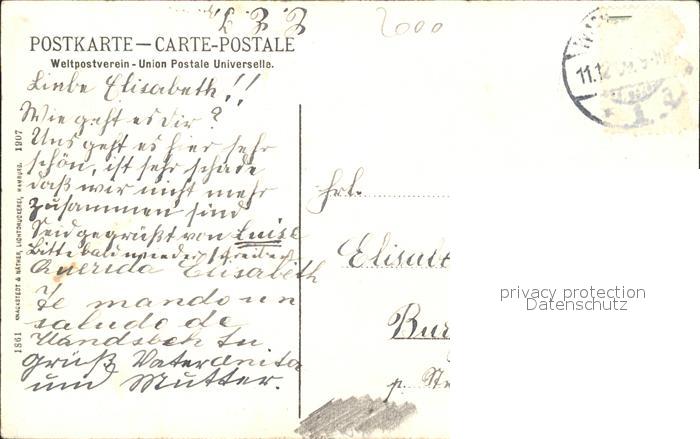 2000
POSTKARTE — CARTE-POSTALE
Weltpostverein - Union Postale Universelle.
Liebe Elisabeth!!
Wie geht es dir?
Uns geht es hier sehr
schön, ist sehr schade
daß wir nicht mehr
zusammen sind
Seid gegrüßt von Luise
Bitte bald wieder schreiben
Querida Elisabeth
Te mando un
saludo de
Wandsbek tu
Anita
Grüß Vater
und Mutter.
1861 KNACKSTEDT & NÄTHER, LICHTDRUCKEREI, HAMBURG. 1907
11.12
Frl.
privacy protection
Datenschutz